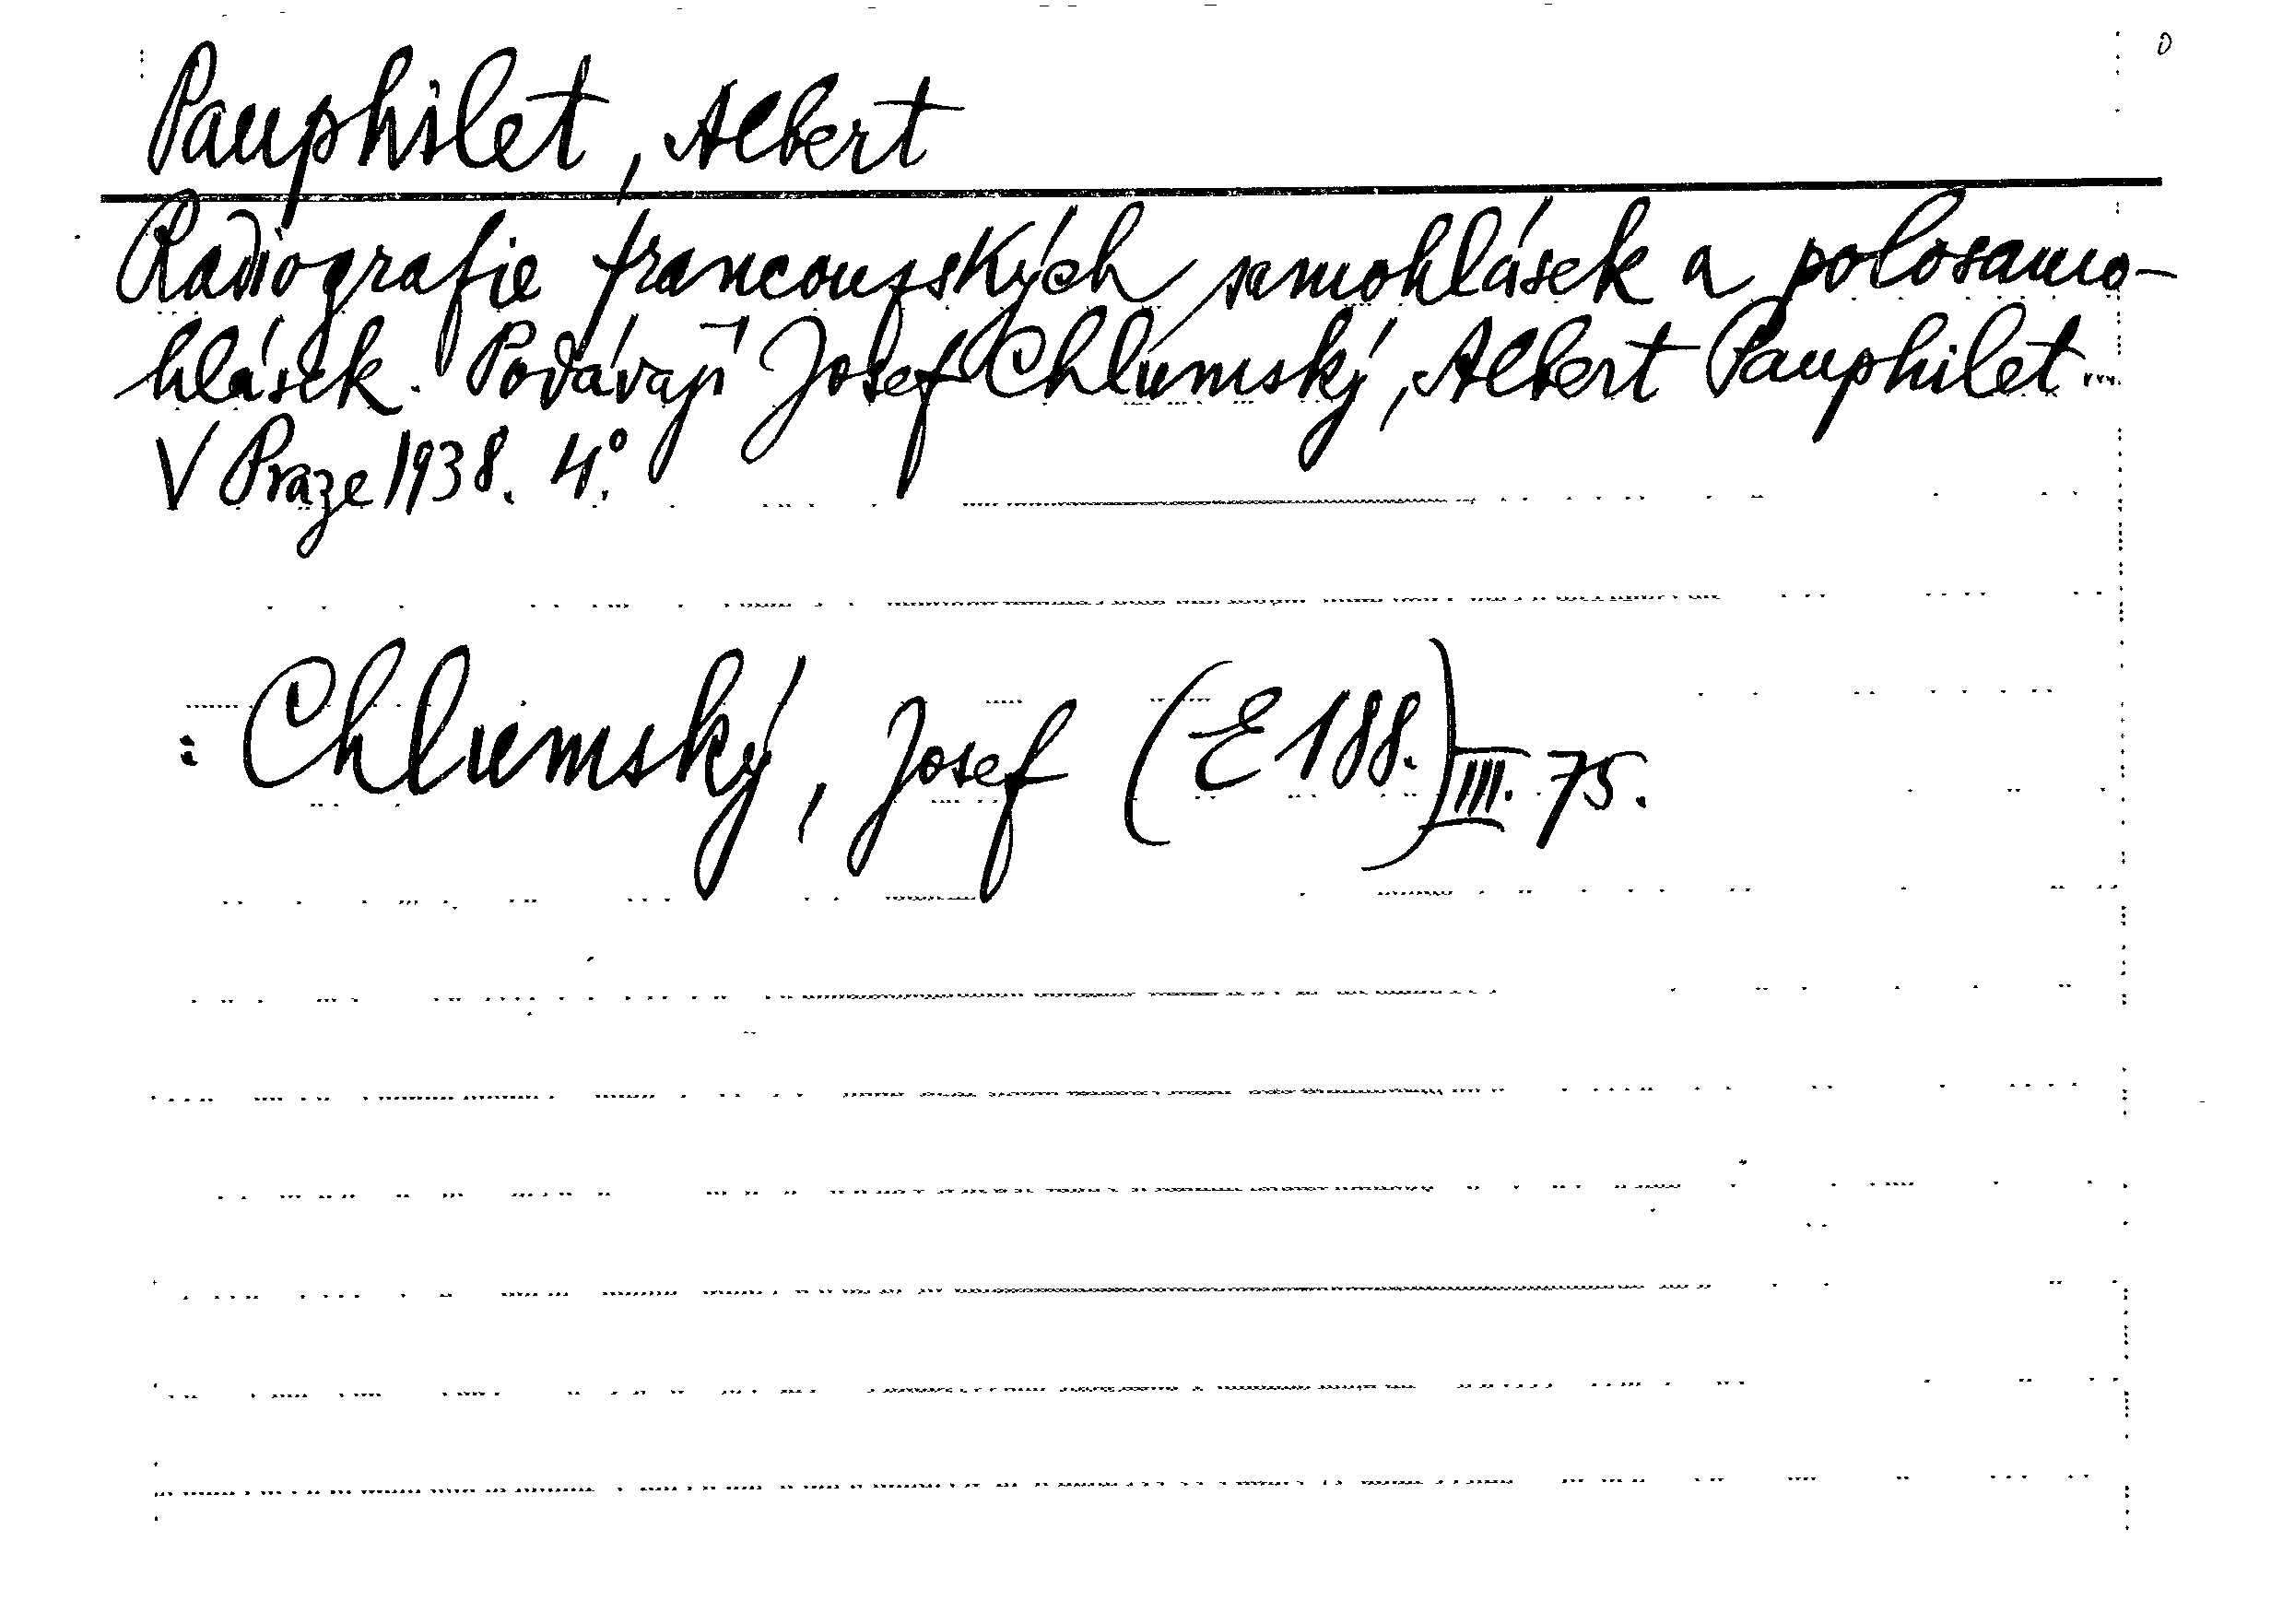 Pauphilet, Albert
Radiografie francouzských samohlásek a polosamo-
hlásek. Podávají Josef Chlumský, Albert Pauphilet...
V Praze 1938. 4°.
: Chlumský, Josef (E 188.) III. 75.